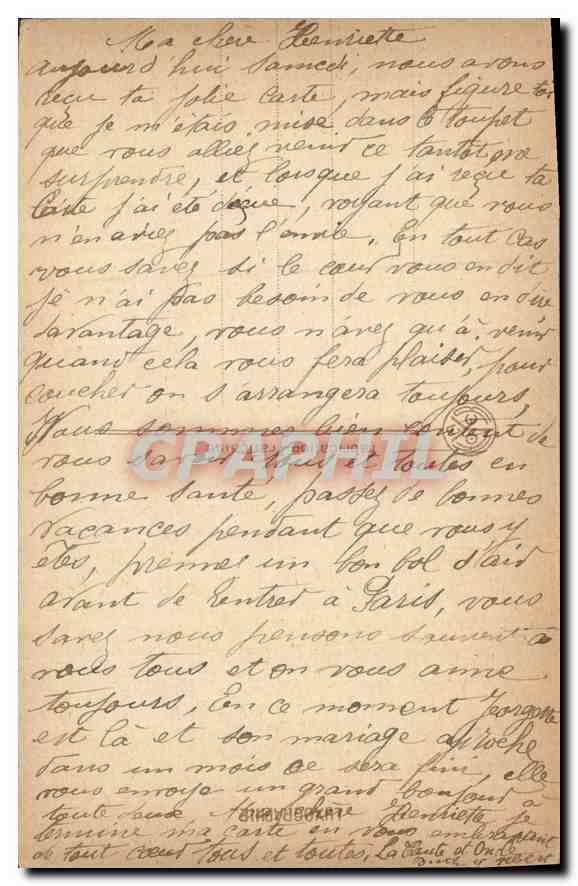 Ma chère Henriette
aujourd'hui Samedi, nous avons
reçu ta jolie carte, mais figure toi
que je m'étais mise dans le toupet
que vous alliez venir ce tantôt me
surprendre, et lorsque j'ai reçu ta
Carte j'ai été déçue, voyant que vous
n'en aviez pas l'envie. En tout cas
vous savez si le cœur vous en dit
je n'ai pas besoin de vous en dire
davantage, vous n'avez qu'à venir
quand cela vous fera plaisir, pour
coucher on s'arrangera toujours,
Nous sommes bien content de
vous savoir tous et toutes en
bonne santé, passez de bonnes
Vacances pendant que vous y
êtes, prenez un bon bol d'air
avant de rentrer à Paris, vous
savez nous pensons souvent à
vous tous et on vous aime
toujours, En ce moment Georgette
est là et son mariage approche
dans un mois ce sera fini, elle
vous envoye un grand bonjour à
toute deux Ma chère Henriette je
termine ma carte en vous embrassant
de tout cœur tous et toutes, La Tante et Oncle
CPAPHIL